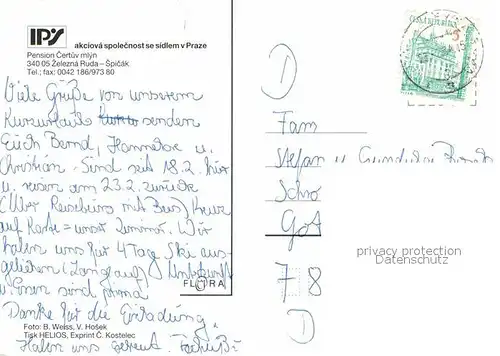 IPS akciová společnost se sídlem v Praze
Pension Čertův mlýn
340 05 Železná Ruda – Špičák
Tel.; fax: 0042 186/973 80
Viele Grüße von unserem
Kurzurlaub senden
Euch Bernd, Hannelore u.
Christian. Sind seit 18.2. hier
u. reisen am 23.2. zurück
(Über Reisebüro mit Bus) Kreuz
auf Karte = unser Zimmer. Wir
haben uns für 4 Tage Ski aus-
geliehen (Langlauf) Unterkunft
u. Essen sind prima
FLÓRA
Danke für die Einladung,
Foto: B. Weiss, V. Hošek
Tisk HELIOS, Exprint Č. Kostelec
Haben uns gefreut.
ČESKÁ REPUBLIKA
5
D
Fam
Stefan u
privacy protection
Datenschutz
7 8
D